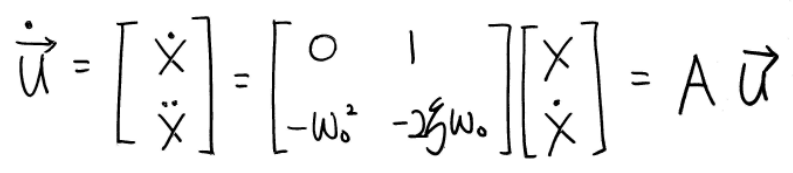 $\dot{\vec{u}} = \begin{bmatrix} \dot{x} \\ \ddot{x} \end{bmatrix} = \begin{bmatrix} 0 & 1 \\ -\omega_0^2 & -2\xi\omega_0 \end{bmatrix} \begin{bmatrix} x \\ \dot{x} \end{bmatrix} = A\vec{u}$